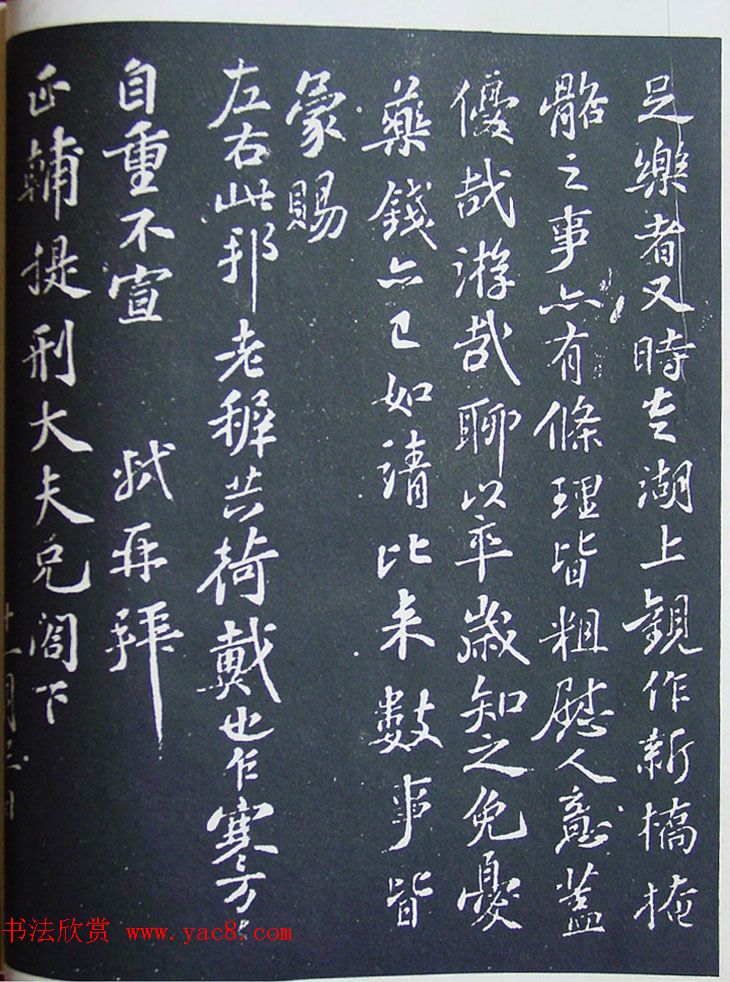 足樂者又時走湖上觀作新橋掩
骼之事亦有條理皆粗慰人意蓋
優哉游哉聊以卒歲知之免憂
藥錢亦已如請比來數事皆
蒙賜
左右此邦老穉共荷戴也乍寒万〻
自重不宣 軾再拜
正輔提刑大夫兄閤下
十一月
日
书法欣赏 www.yac8.com